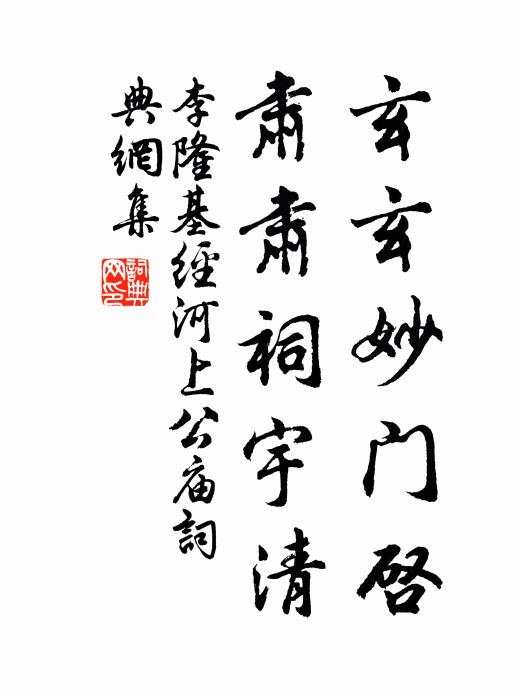 玄玄妙门啓
肃肃祠宇清
李隆基經河上公庙詞
典網集
詞典网印